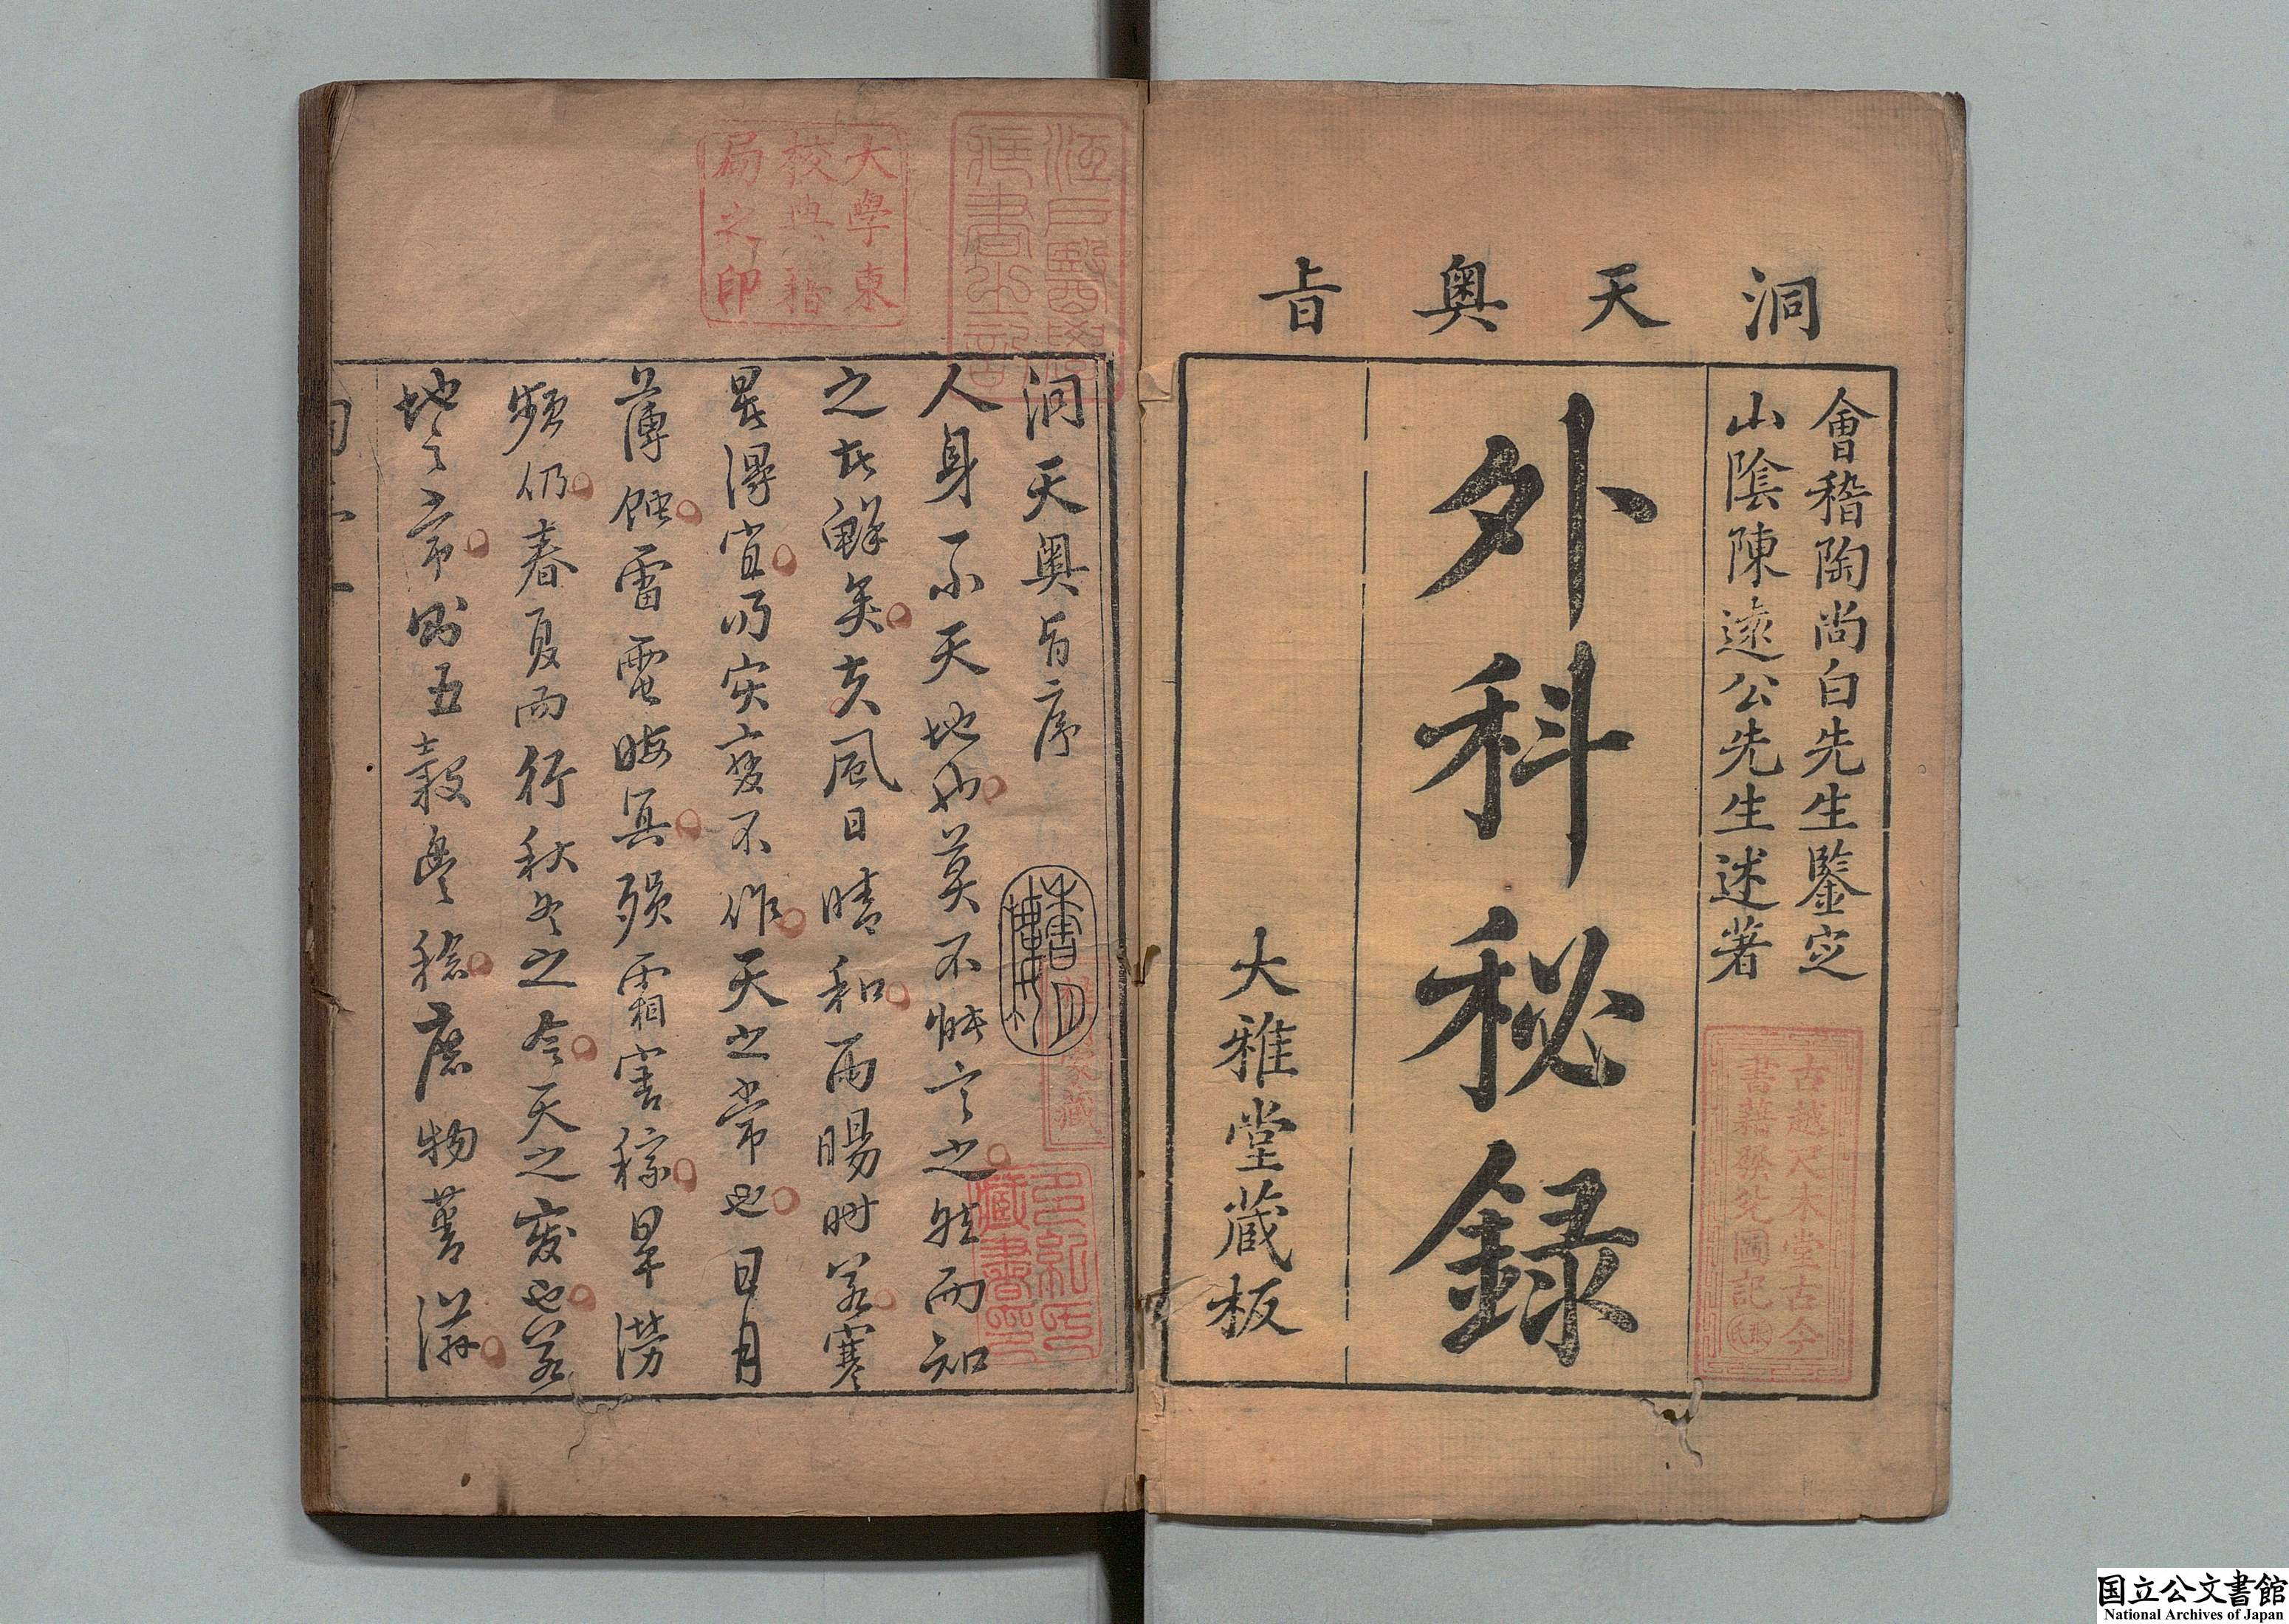 洞天奥旨
會稽陶尚白先生鑒定
山陰陳遠公先生述著
外科秘録
大雅堂蔵板
古越尺木堂古今
書籍發兌圖記
洞天奥旨序
人身一小天地也莫不能言之然而知
之者鮮矣夫風日晴和雨暘時若寒
暑得宜而灾變不作天之常也日月
薄蝕雷電晦冥殞霜害稼旱澇
頻仍春夏而行秋冬之令天之變也若
地之常則五穀豊稔庶物蕃滋
大學東
校典籍
局之印
江戸醫學
藏書之記
多紀氏
藏書印
家藏
国立公文書館
National Archives of Japan